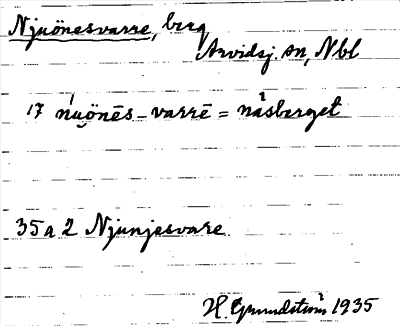 Njuönesvarre, berg
Arvidsj. sn, Nbl
17 ńuönēs-varrē = nåsberget
35 a 2 Njunjesvare
H. Grundström 1935